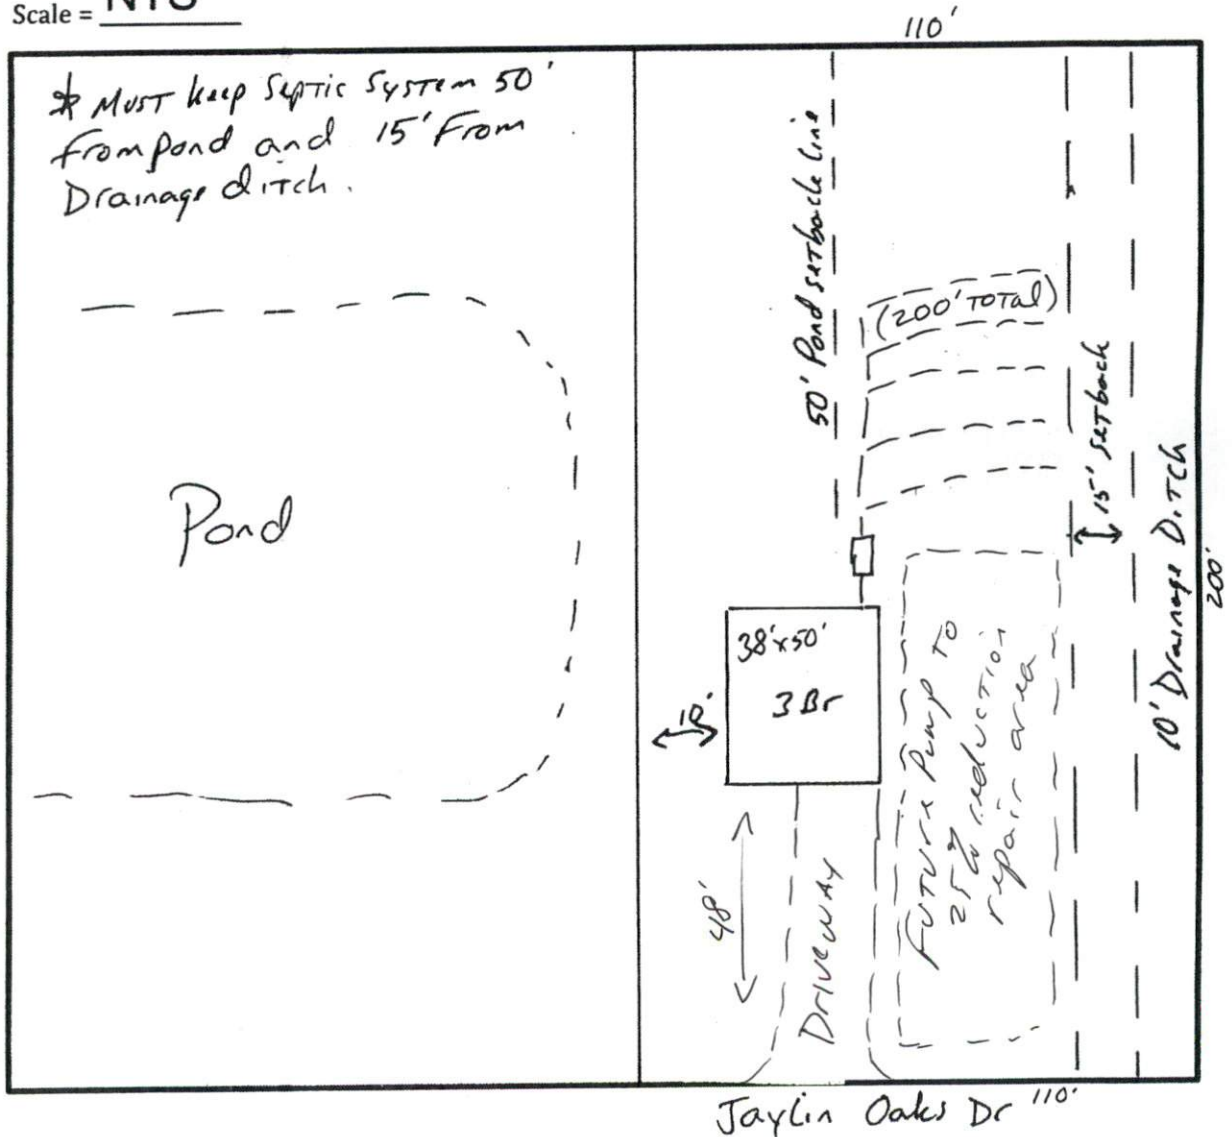 Scale = NTS
110'
* Must keep Septic System 50'
from pond and 15' From
Drainage ditch.
50' Pond setback line
(200' TOTAL)
15' setback
10' Drainage Ditch
200'
Pond
38'x50'
3 Br
10'
48'
Driveway
Future Pump to
25% reduction
repair area
Jaylin Oaks Dr
110'